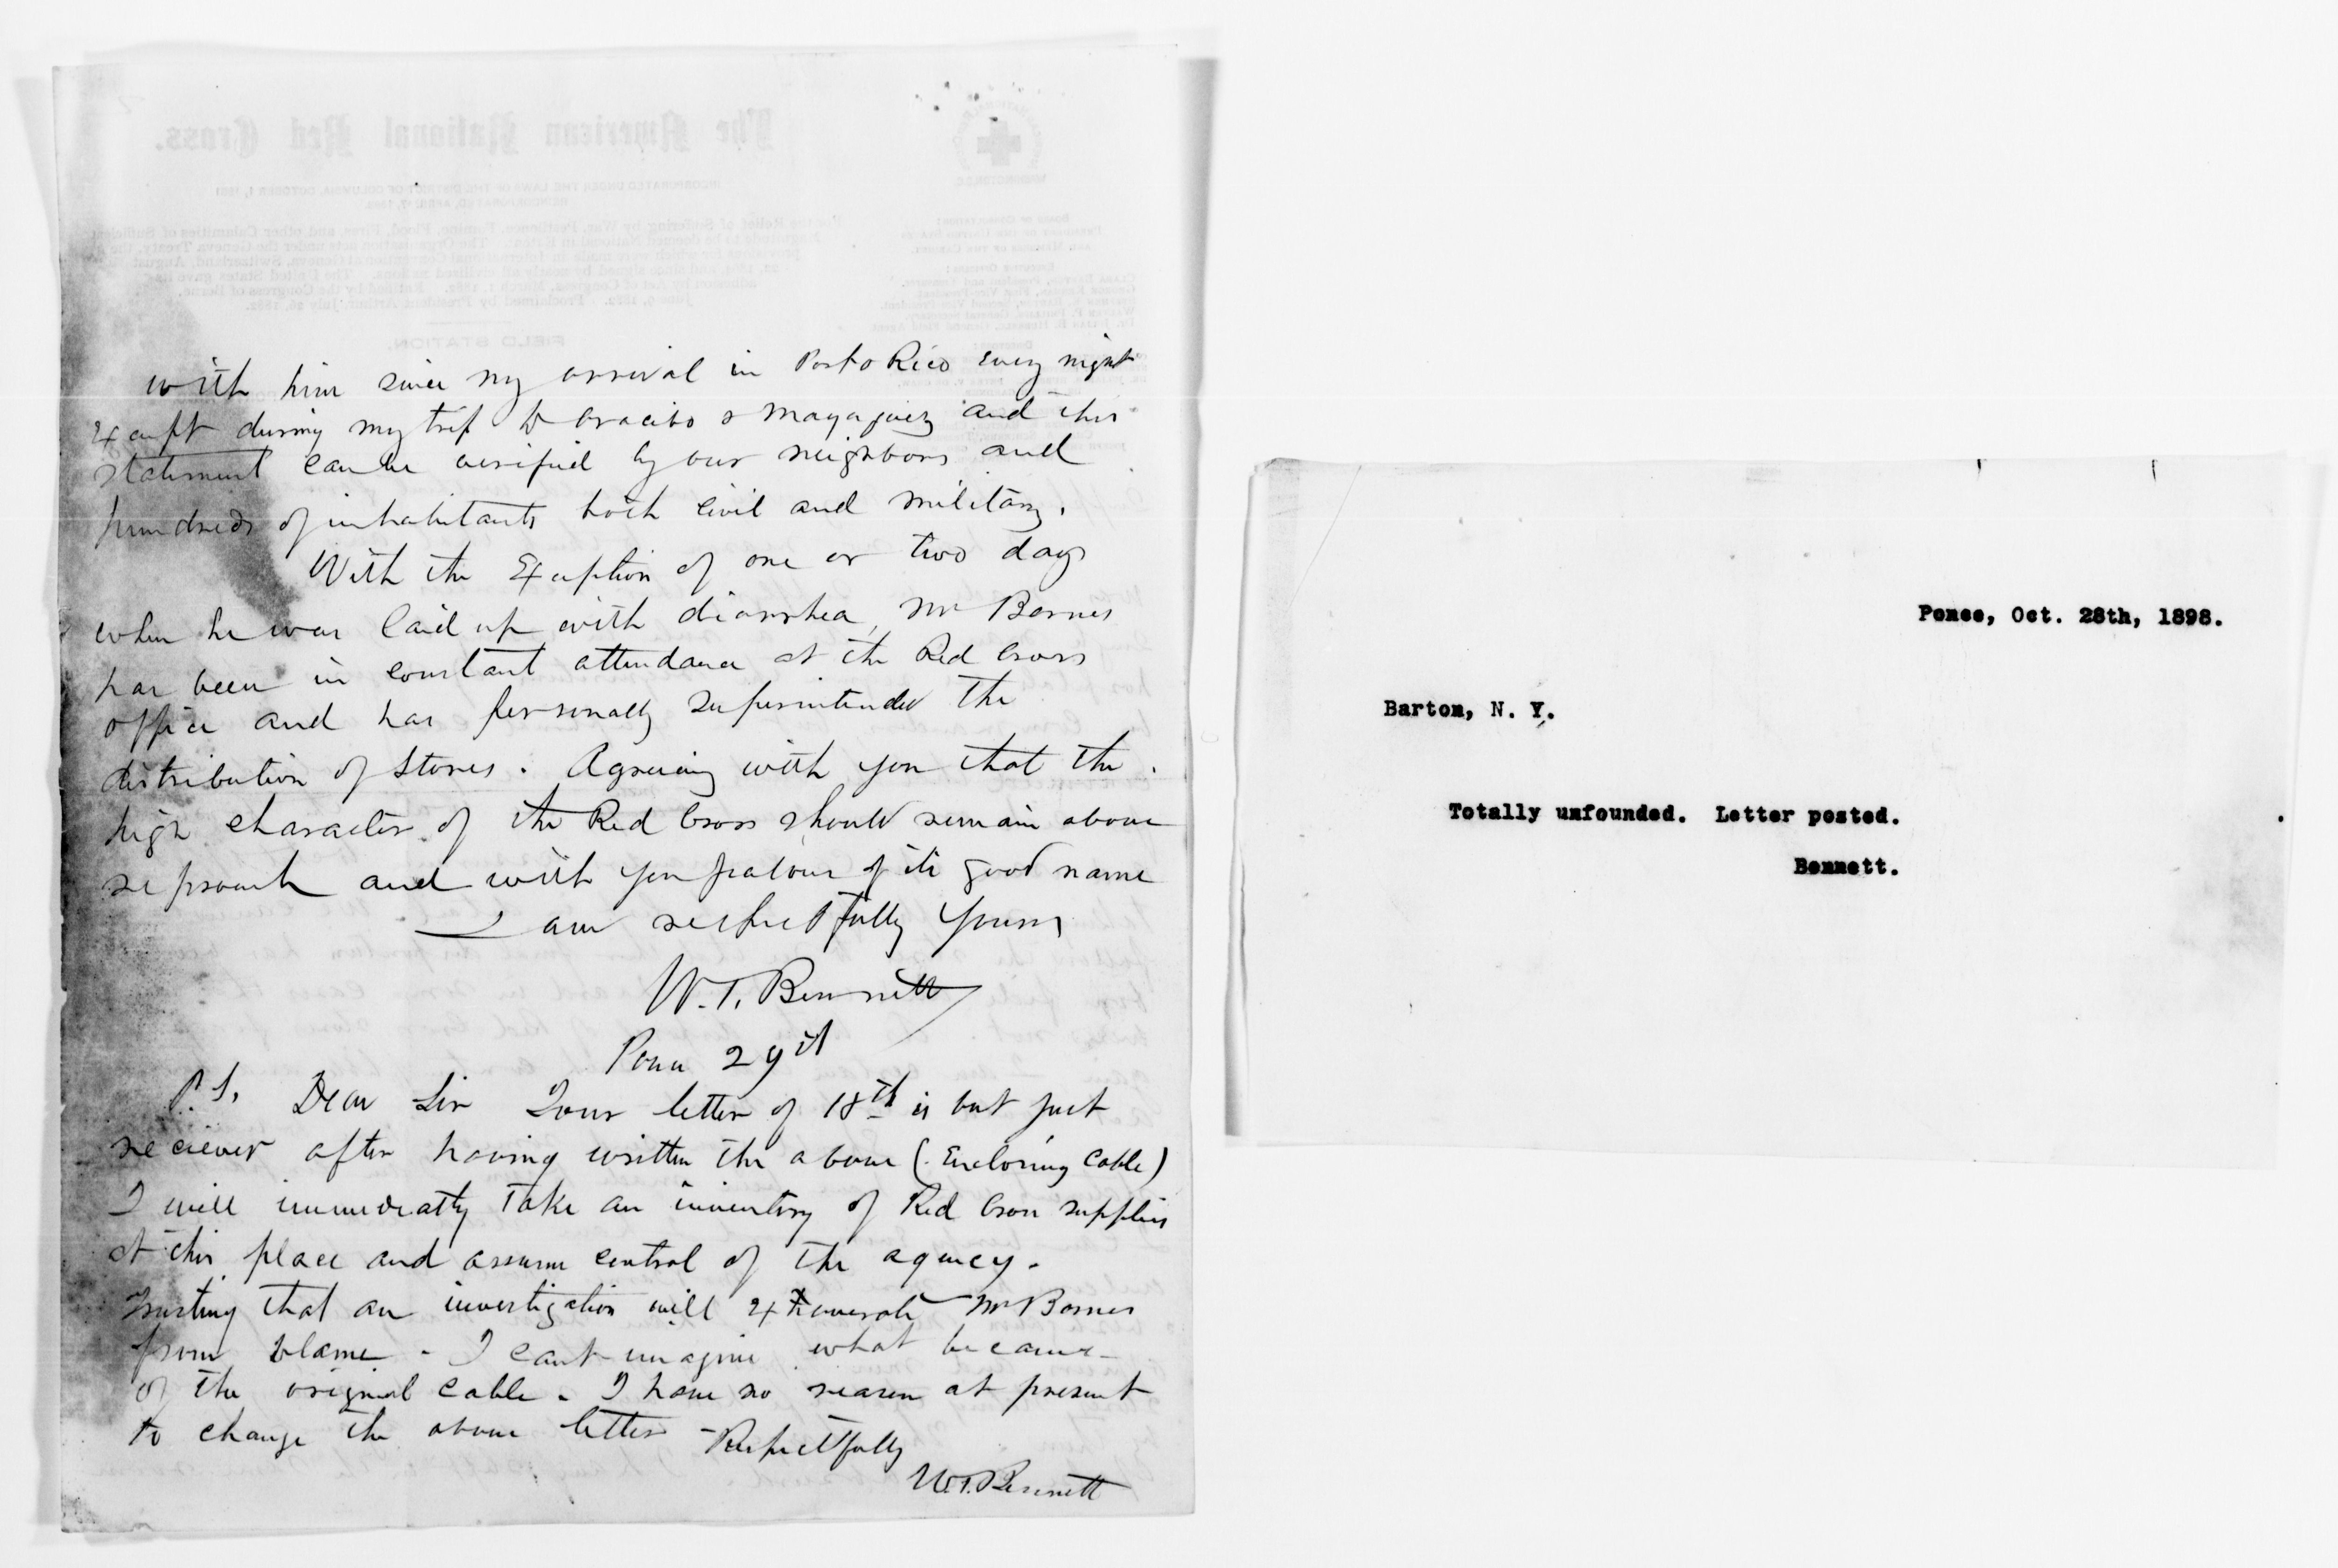 with him since my arrival in Porto Rico every night
Except during my trip to Aracibo & Mayaguez and this
statement can be verified by our neighbors and
hundreds of inhabitants both civil and military.
With the Exception of one or two days
when he was laid up with diarrhea, Mr Barnes
has been in constant attendance at the Red Cross
office and has personally superintended the
distribution of stores. Agreeing with you that the
high character of the Red Cross should remain above
reproach and with you jealous of its good name
I am respectfully yours
W. T. Bennett
Ponce 29th
P.S. Dear Sir Your letter of 18th is but just
reciever after having written the above (Enclosing Cable)
I will immediatly take an inventory of Red Cross supplies
at this place and assume control of the agency.
Trusting that an investigation will Exonerate Mr Barnes
from blame - I cant imagine what became
of the original cable. I have no reason at present
to change the above letter - Respectfully
W.T. Bennett
Ponce, Oct. 28th, 1898.
Barton, N. Y.
Totally unfounded. Letter posted.
Bennett.